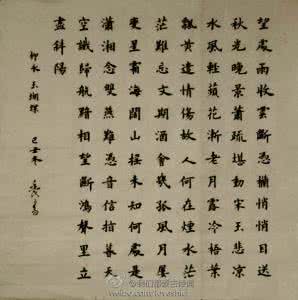 望處雨收雲斷憑欄悄悄目送
秋光晚景蕭疏堪動宋玉悲涼
水風輕蘋花漸老月露冷梧葉
飄黄遣情傷故人何在煙水茫
茫難忘文期酒會幾孤風月屢
變星霜海闊山遥未知何處是
瀟湘念雙燕難憑音信指暮天
空識歸航黯相望斷鴻聲里立
盡斜陽
柳永 玉蝴蝶 己丑冬
@我们都爱古诗词
weibo.com/loveshici